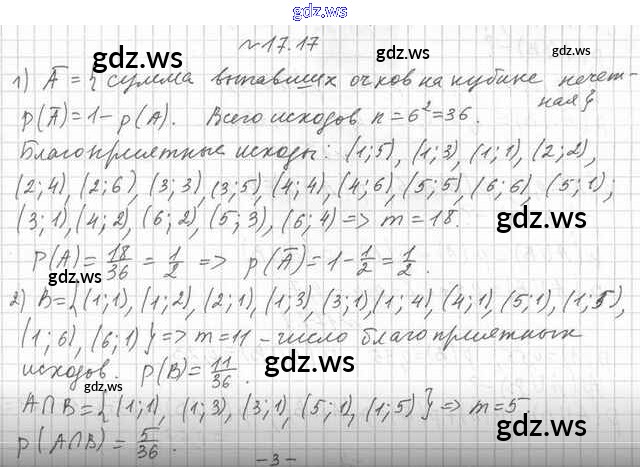 gdz.ws
№17.17
gdz.ws gdz.ws
1) A̅ = { сумма выпавших очков на кубике нечет-
ная}
p(A̅)=1-p(A). Всего исходов n=6²=36.
gdz.ws gdz.ws
Благоприятные исходы: (1;5), (1;3), (1;1), (2;2),
(2;4), (2;6), (3;3), (3;5), (4;4), (4;6), (5;5), (6;6), (5;1);
(3;1), (4;2), (6;2), (5;3), (6;4) => m=18.
gdz.ws
P(A)=18/36=1/2 => p(A̅)=1-1/2=1/2.
gdz.ws
2) B={(1;1), (1;2), (2;1), (1;3), (3;1), (1;4), (4;1), (5;1), (1;5),
(1;6), (6;1)} => m=11 - число благоприятных
gdz.ws
исходов. p(B)=11/36.
gdz.ws
A∩B={(1;1), (1;3), (3;1), (5;1), (1;5)} => m=5
gdz.ws
p(A∩B)=5/36.
gdz.ws
-3-